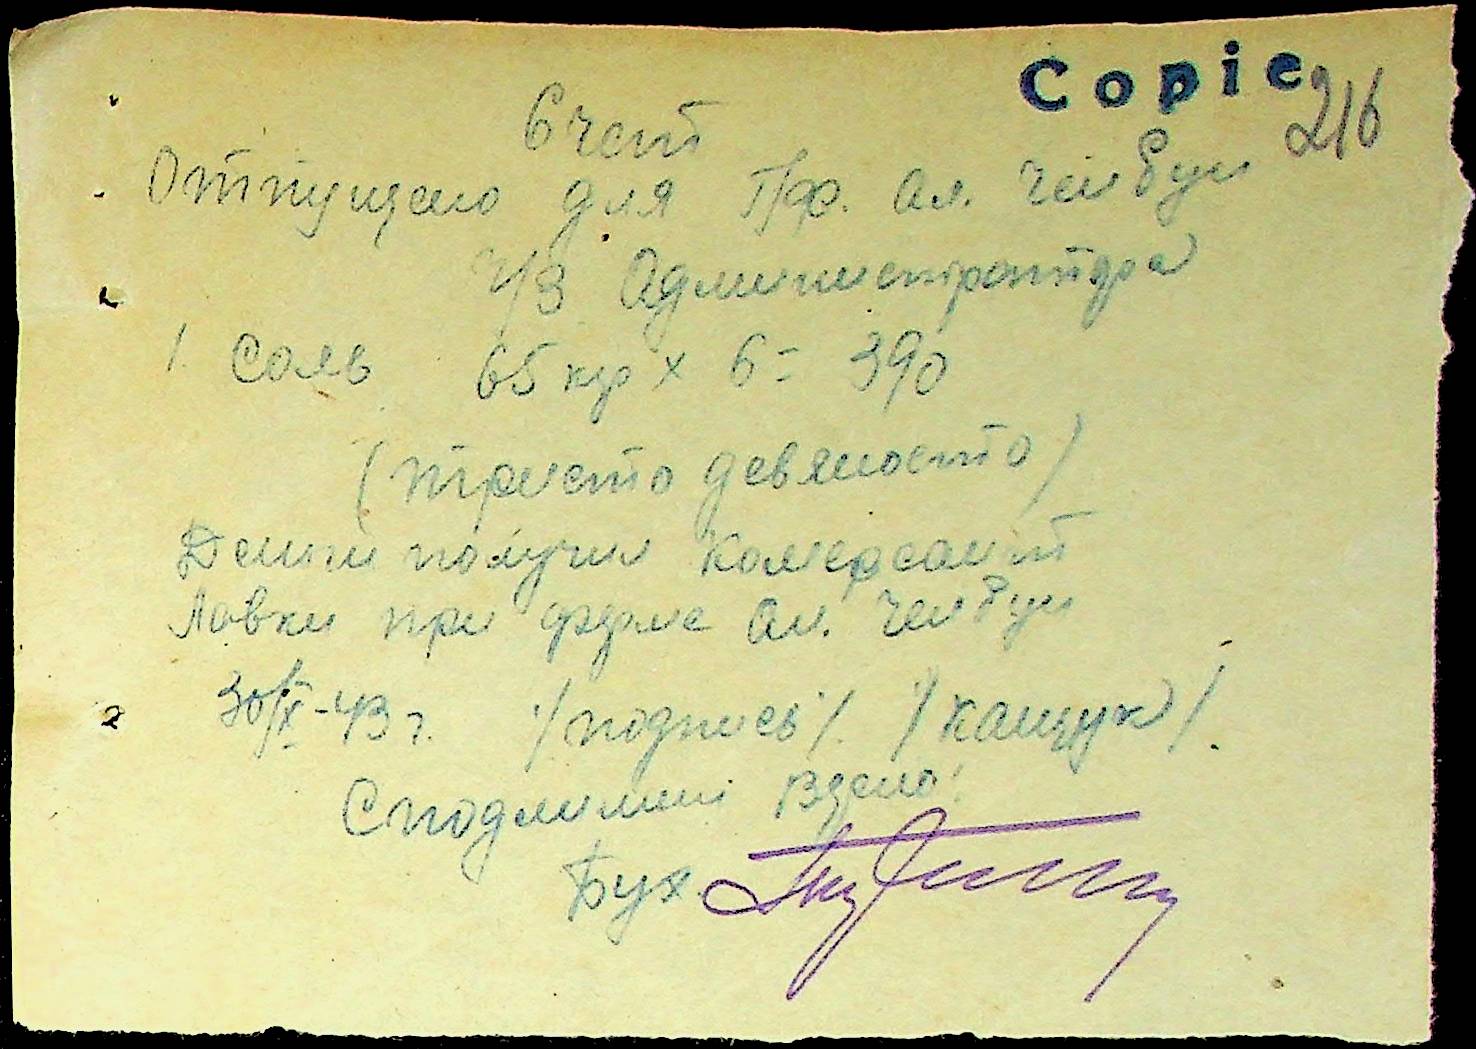 Copie
216
Счет
Отпущено для Г/ф. Ал. Челбуи
ч/з Администратора
1. Соль 65 кгр × 6 = 390
(триста девяносто)
Деньги получил Комерсант
Лавки при ферме Ал. Челбуи
30/X-43 г. /подпись/. /Кащук/.
С подлинным верно:
Бух.